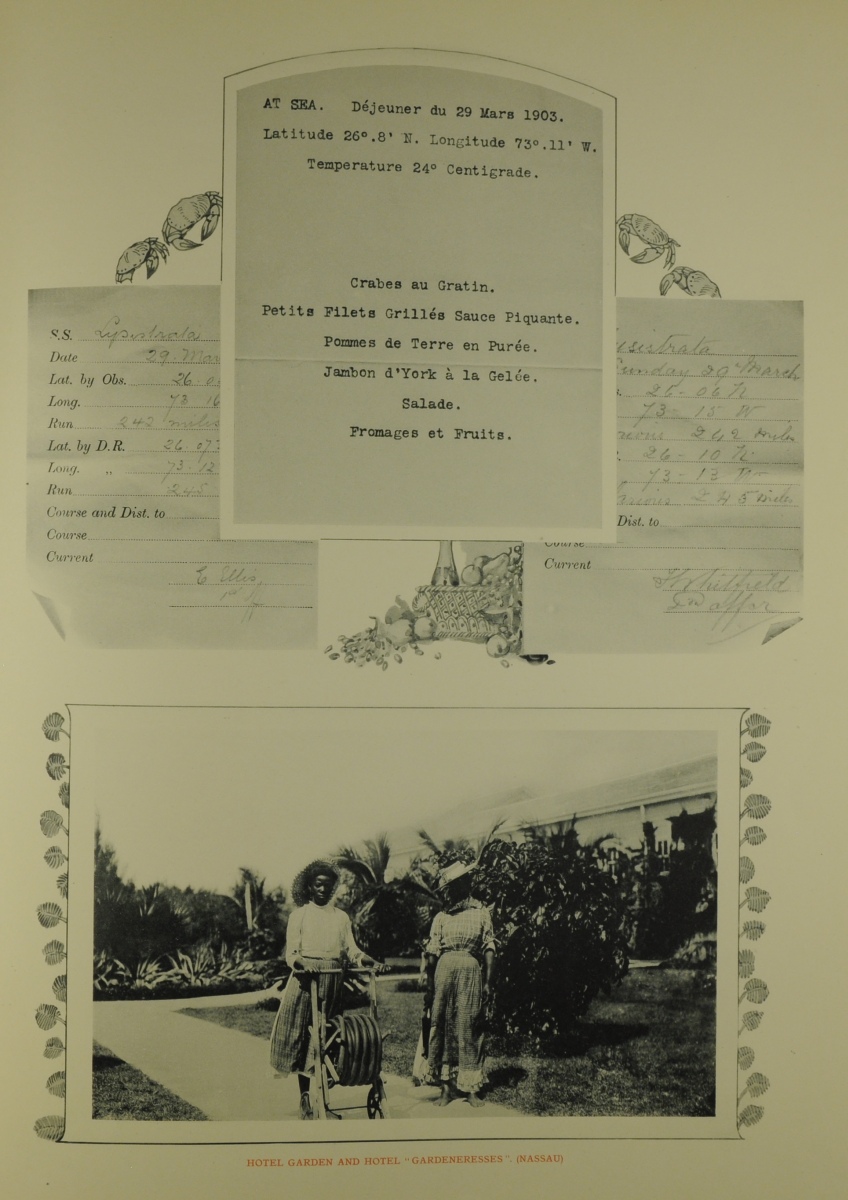 AT SEA. Déjeuner du 29 Mars 1903.
Latitude 26°.8' N. Longitude 73°.11' W.
Temperature 24° Centigrade.
Crabes au Gratin.
Petits Filets Grillés Sauce Piquante.
Pommes de Terre en Purée.
Jambon d'York à la Gelée.
Salade.
Fromages et Fruits.
S.S. Lysistrata
Date 29 Mar
Lat. by Obs. 26.0
Long. 73 16
Run 242 miles
Lat. by D.R. 26.07
Long. „ 73-12
Run 245
Course and Dist. to
Course
Current
C Ellis
usistrata
Sunday 29th March
06 N
73- 15 W
242 miles
26-10 N
73-13 W
245 miles
Dist. to
Course
Current
Whitfield
HOTEL GARDEN AND HOTEL "GARDENERESSES". (NASSAU)